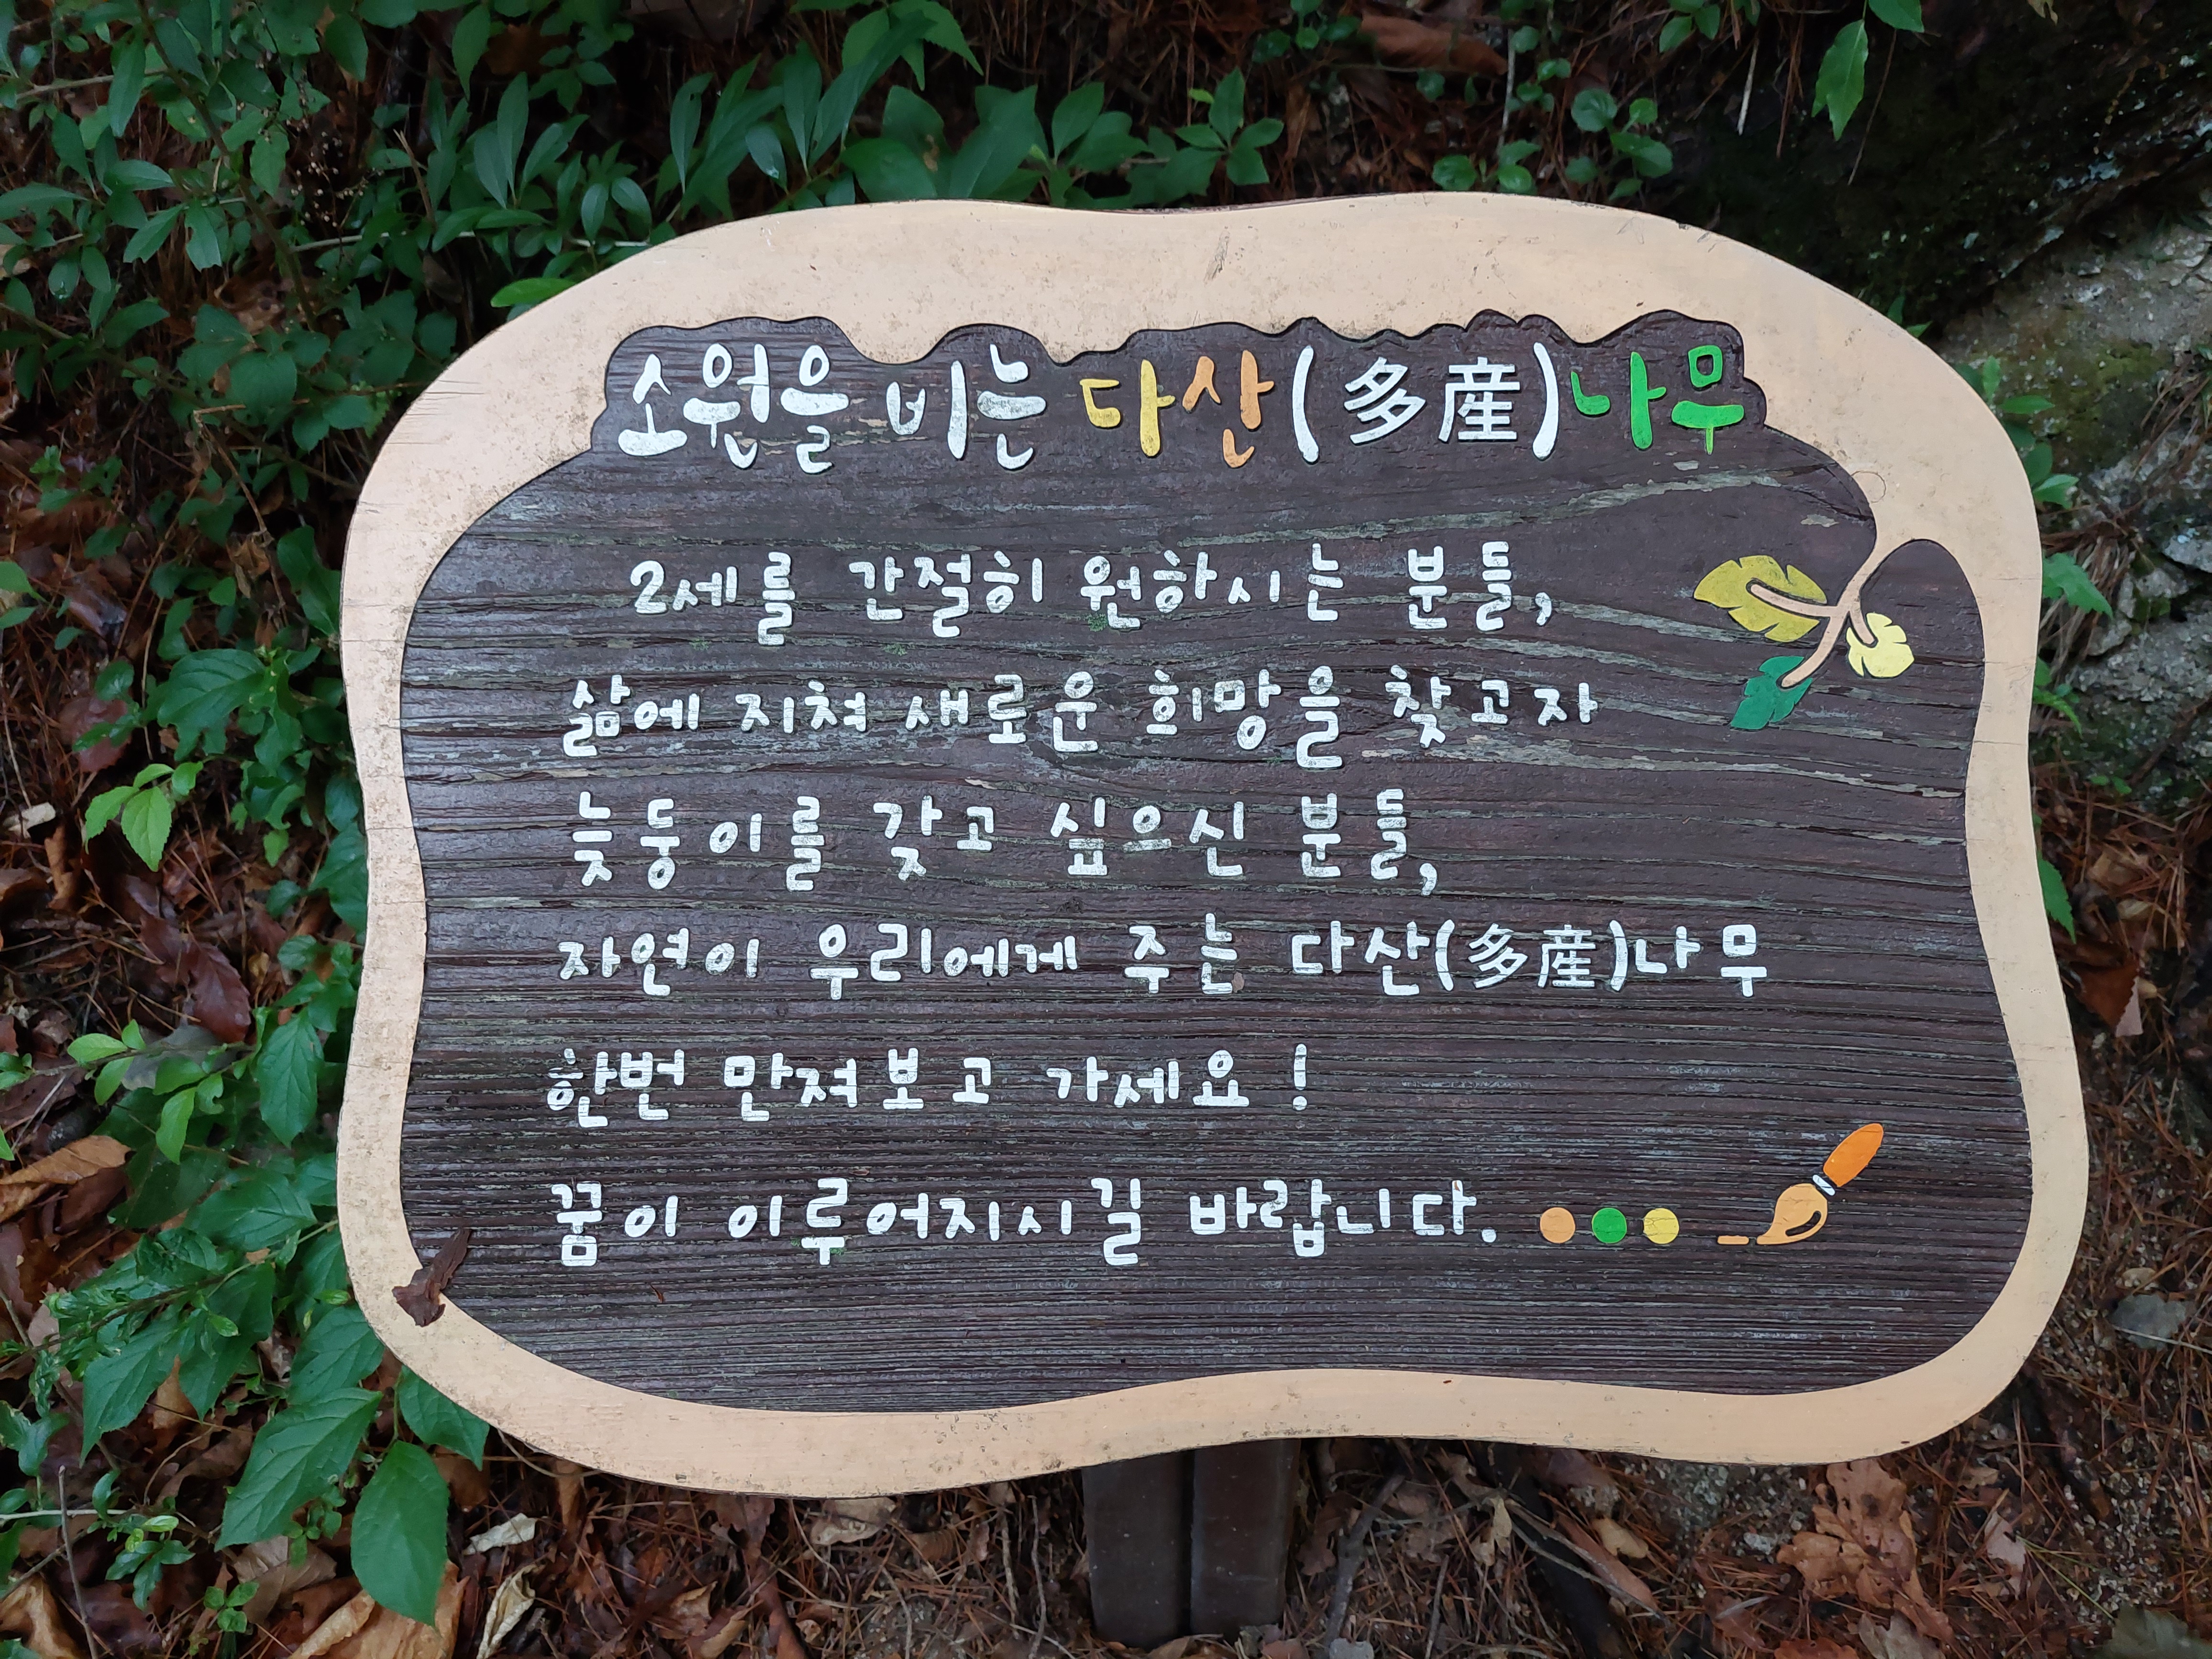 소원을 비는 다산(多産)나무
2세를 간절히 원하시는 분들,
삶에 지쳐 새로운 희망을 찾고자
늦둥이를 갖고 싶으신 분들,
자연이 우리에게 주는 다산(多産)나무
한번 만져보고 가세요!
꿈이 이루어지시길 바랍니다.